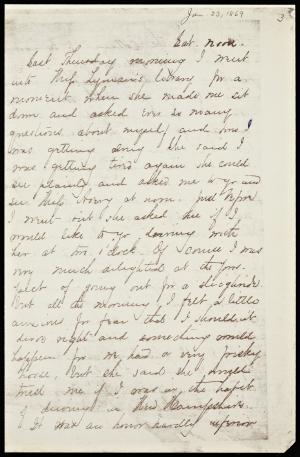 Jan 23, 1869
3
Sat. noon.
Last Thursday morning I went
into Miss Lyman's library for a
moment when she made me sit
down and asked ever so many
questions about myself and how I
was getting along. She said I
was getting tired again she could
see plainly and asked me to go and
see Miss Avery at noon. Just before
I went out she asked me if I
would like to go driving with
her at two o'clock. Of course I was
very much delighted at the pros-
pect of going out for a sleighride
but all the morning I felt a little
anxious for fear that I should n't
drive right and something would
happen for we had a very frisky
horse, but she said she
trust me if I was in the habit
of driving in New Hampshire.
It was an honor hardly